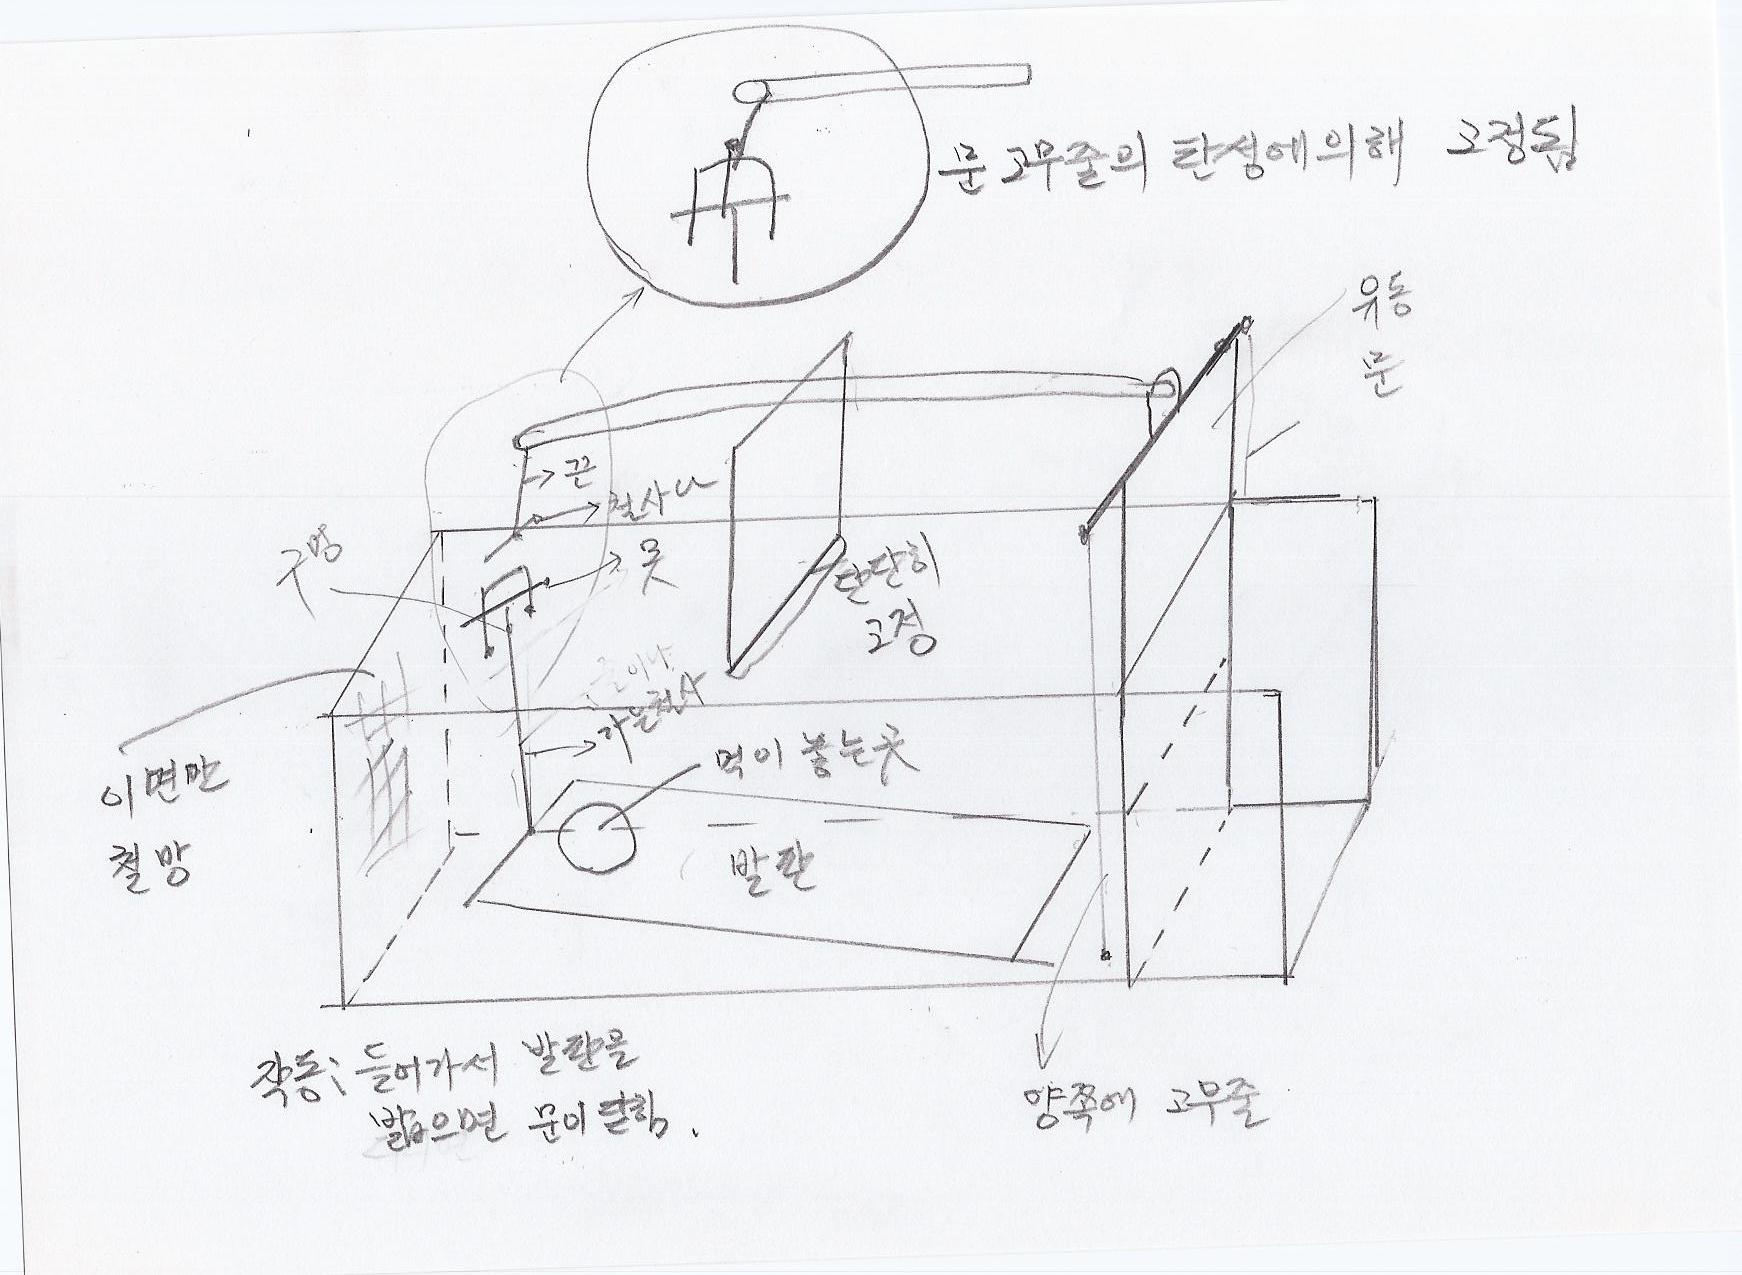 문 고무줄의 탄성에 의해 고정됨
유동
문
끈
철사나
못
구멍
단단히
고정
끈이나
가는철사
먹이 놓는곳
발판
이면만
철망
작동: 들어가서 발판을
밟으면 문이 닫힘.
양쪽에 고무줄